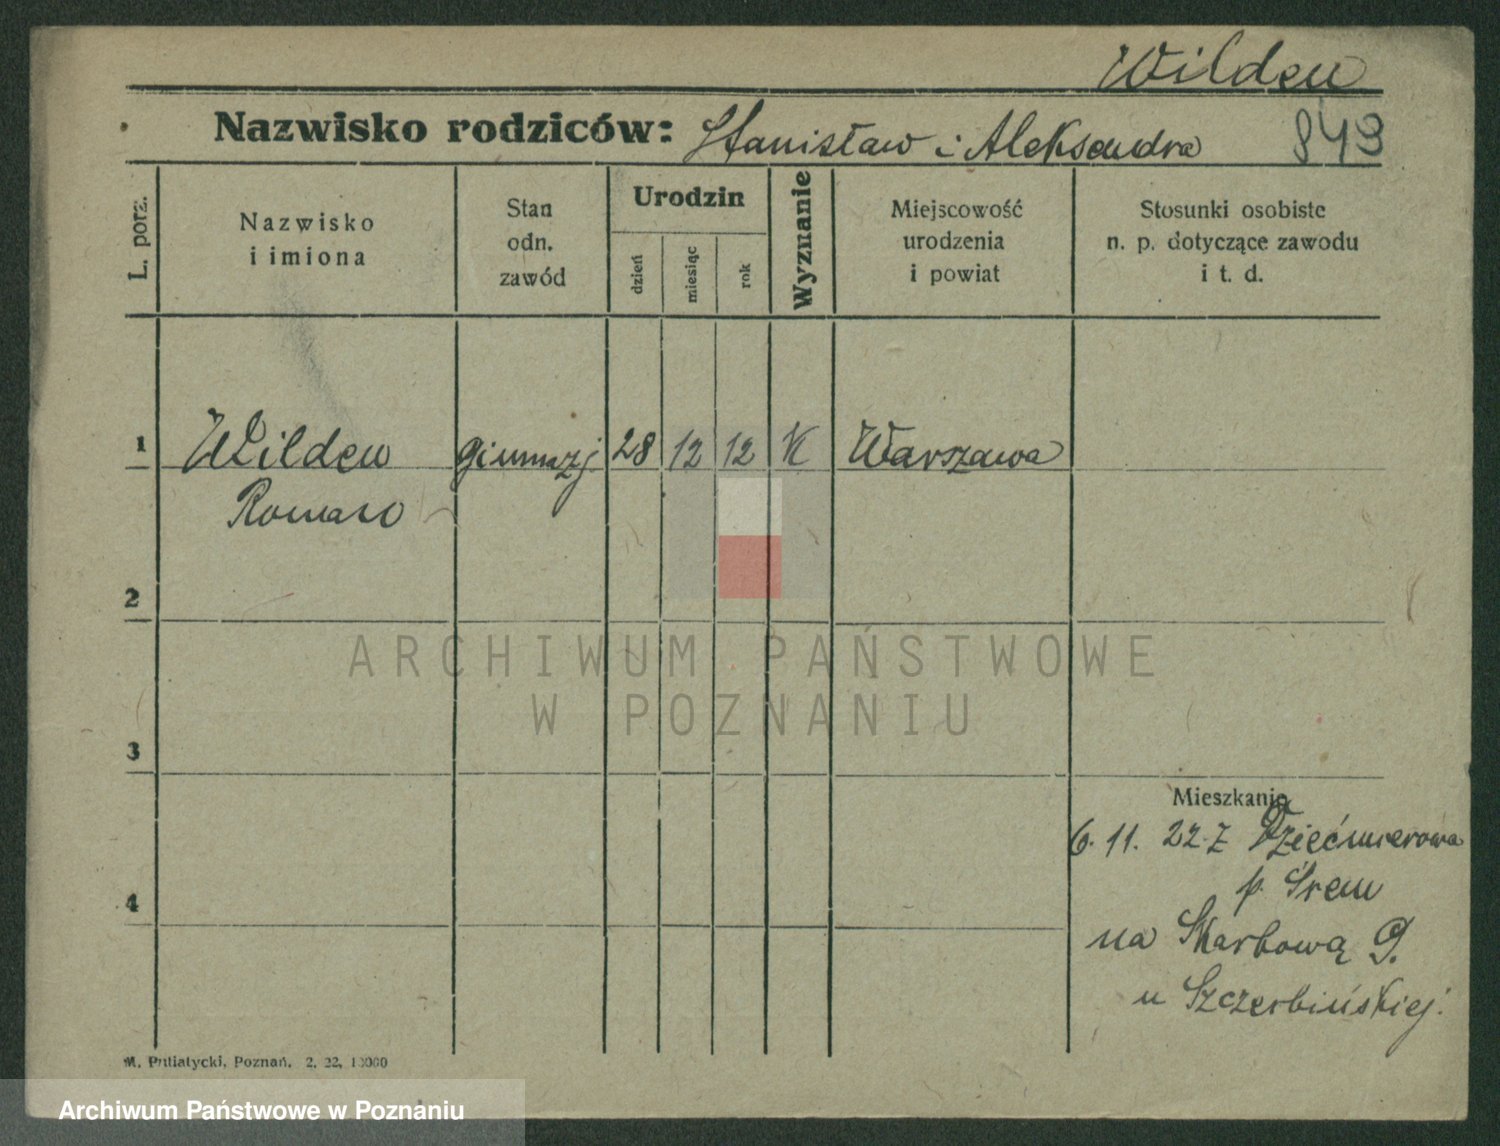 Wilden
Nazwisko rodziców: Stanisław i Aleksandra 849
L. porz.
Nazwisko
i imiona
Stan
odn.
zawód
Urodzin
dzień
miesiąc
rok
Wyznanie
Miejscowość
urodzenia
i powiat
Stosunki osobiste
n. p. dotyczące zawodu
i t. d.
1 Wilden gimnazj. 28 12 12 K Warszawa
Roman
2
ARCHIWUM PAŃSTWOWE
W POZNANIU
3
Mieszkanie
6. 11. 22 z Dziećmierowa
4
p. Śrem
na Skarbową 9.
u Szczerbińskiej.
M. Putiatycki, Poznań. 2. 22, 10000
Archiwum Państwowe w Poznaniu